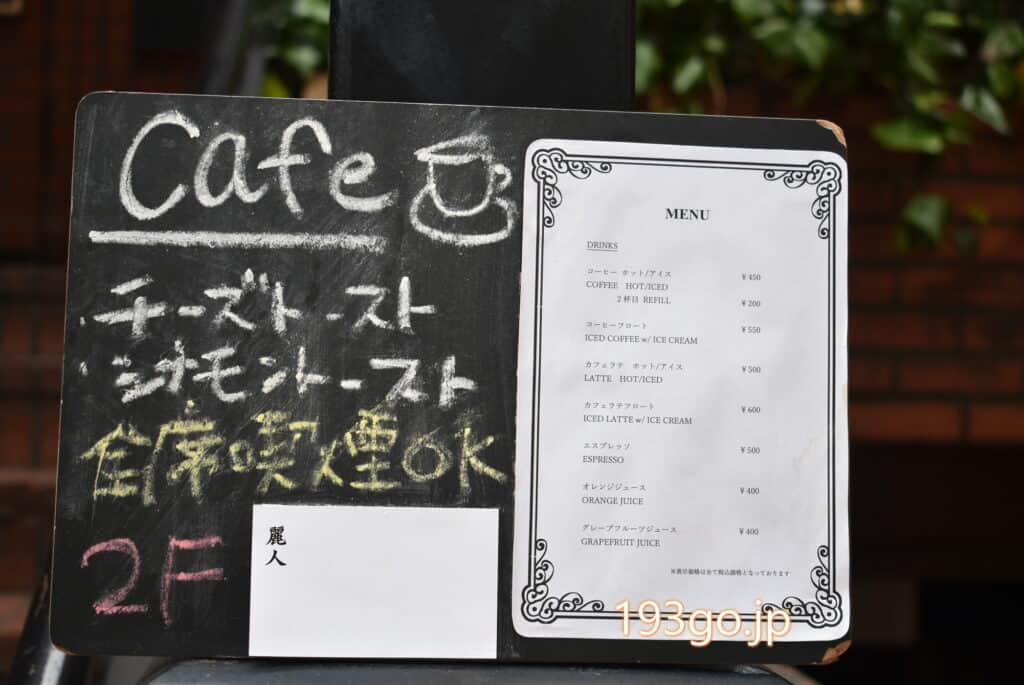 Cafe
・チーズトースト
・シナモントースト
全席喫煙OK
2F
麗人
MENU
DRINKS
コーヒー ホット/アイス ¥450
COFFEE HOT/ICED
2杯目 REFILL ¥200
コーヒーフロート ¥550
ICED COFFEE w/ ICE CREAM
カフェラテ ホット/アイス ¥500
LATTE HOT/ICED
カフェラテフロート ¥600
ICED LATTE w/ ICE CREAM
エスプレッソ ¥500
ESPRESSO
オレンジジュース ¥400
ORANGE JUICE
グレープフルーツジュース ¥400
GRAPEFRUIT JUICE
※表示価格は全て税込価格となっております
193go.jp